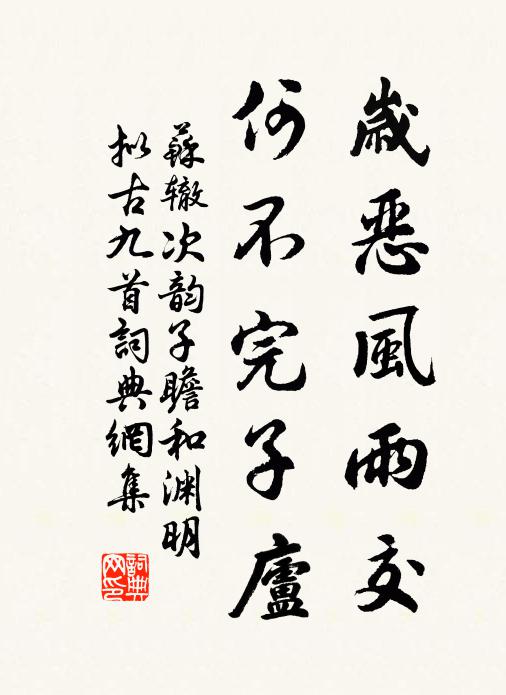 歲惡風雨交
何不完子廬
蘇辙次韵子瞻和渊明
拟古九首詞典網集
詞典
网印